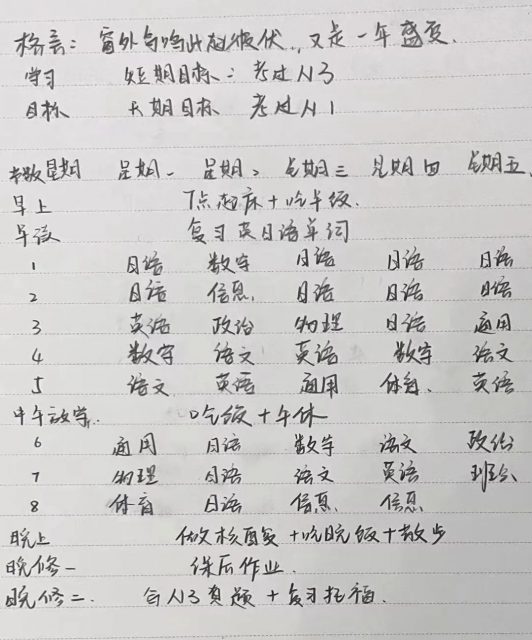 格言：窗外鸟鸣此起彼伏，又是一年盛夏.
学习 短期目标：考过N3
目标 长期目标 考过N1
节数 星期 星期一 星期二 星期三 星期四 星期五
早上 7点起床+吃早饭.
早读 复习英日语单词
1 日语 数学 日语 日语 日语
2 日语 信息 日语 日语 日语
3 英语 政治 物理 日语 通用
4 数学 语文 英语 数学 语文
5 语文 英语 通用 体育 英语
中午放学 吃饭+午休
6 通用 日语 数学 语文 政治
7 物理 日语 语文 英语 班会
8 体育 日语 信息 信息
晚上 做核酸+吃晚饭+散步
晚修一 课后作业.
晚修二. N3真题+复习托福.